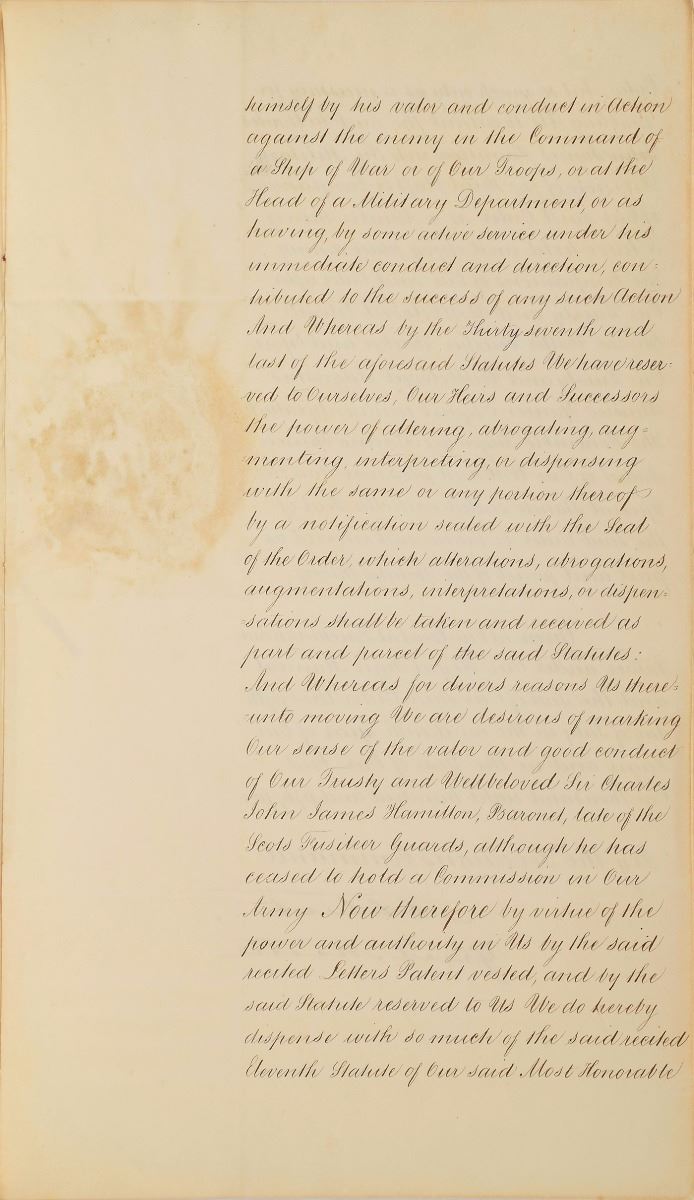 himself by his valor and conduct in Action
against the enemy in the Command of
a Ship of War or of Our Troops, or at the
Head of a Military Department, or as
having, by some active service under his
immediate conduct and direction, con-
tributed to the success of any such Action
And Whereas by the Thirty seventh and
last of the aforesaid Statutes We have reser-
ved to Ourselves, Our Heirs and Successors
the power of altering, abrogating, aug=
menting, interpreting, or dispensing
with the same or any portion thereof
by a notification sealed with the Seal
of the Order, which alterations, abrogations,
augmentations, interpretations, or dispen=
sations shall be taken and received as
part and parcel of the said Statutes:
And Whereas for divers reasons Us there=
unto moving We are desirous of marking
Our sense of the valor and good conduct
of Our Trusty and Wellbeloved Sir Charles
John James Hamilton, Baronet, late of the
Scots Fusileer Guards, although he has
ceased to hold a Commission in Our
Army Now therefore by virtue of the
power and authority in Us by the said
recited Letters Patent vested, and by the
said Statute reserved to Us We do hereby
dispense with so much of the said recited
Eleventh Statute of Our said Most Honorable